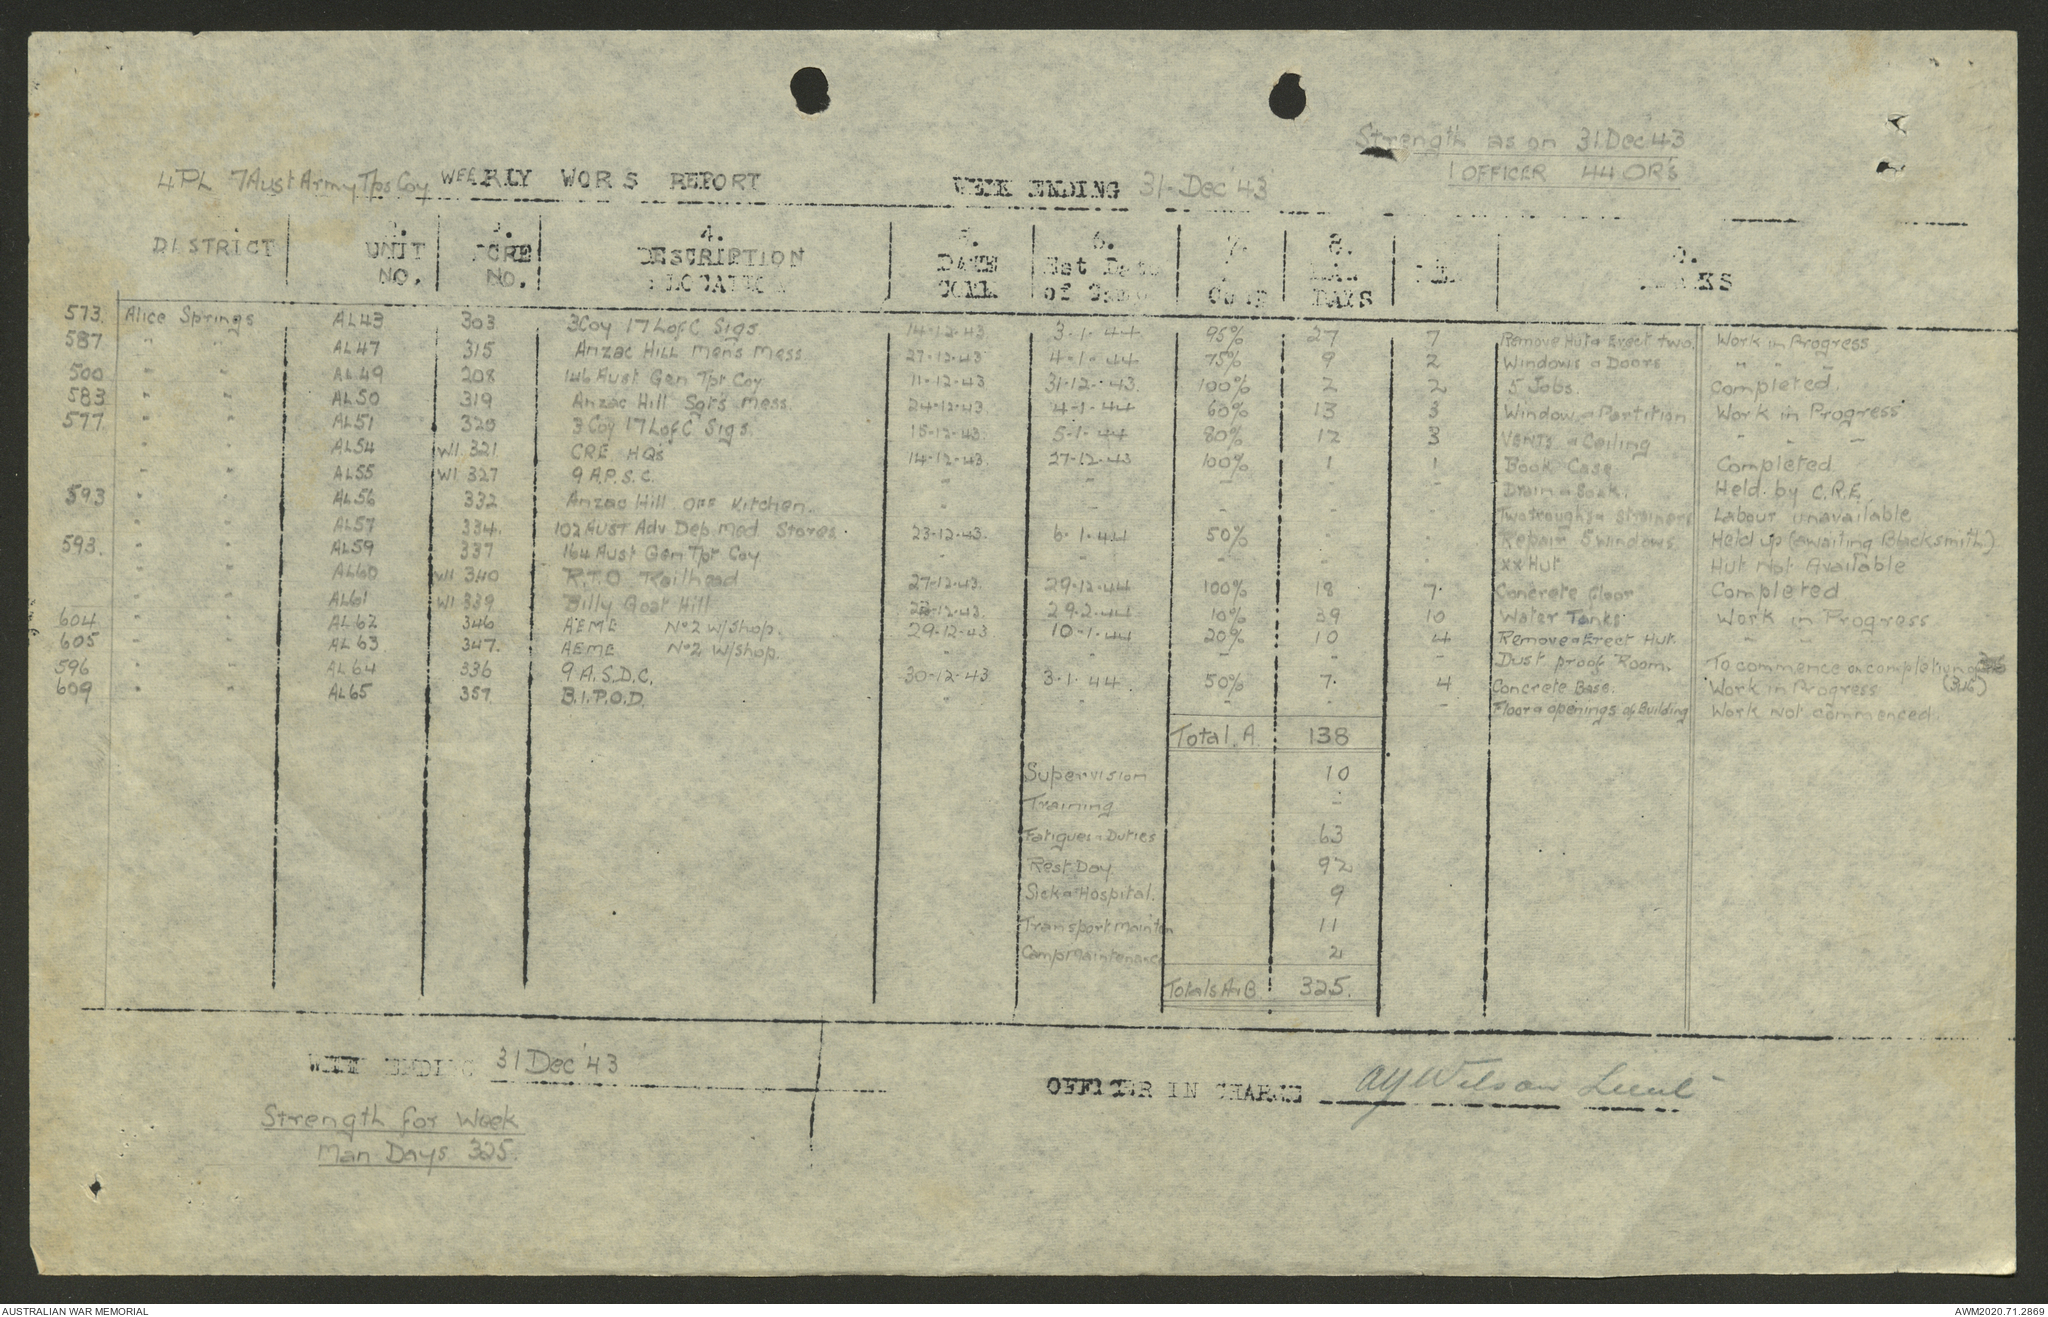 Strength as on 31 Dec '43
1 OFFICER 44 OR's
4 PL 7 Aust Army Tps Coy WEEKLY WORKS REPORT WEEK ENDING 31-Dec '43
DISTRICT 2. UNIT NO. 3. CRE NO. 4. DESCRIPTION LOCATION 5. DATE COMM 6. Est Date of Comp 7. % COMP 8. MAN DAYS 9. REMARKS
573. Alice Springs AL43 303 3 Coy 17 L of C Sigs 14-12-43 3-1-44 95% 27 7 Remove Hut & Erect two. Work in Progress
587 " " AL47 315 Anzac Hill Men's Mess 27-12-43 4-1-44 75% 9 2 Windows & Doors " " "
500 " " AL49 208 146 Aust Gen Tpt Coy 11-12-43 31-12-43. 100% 2 2 5 Jobs. Completed.
583 " " AL50 319 Anzac Hill Sgts Mess. 24-12-43 4-1-44 60% 13 3 Window & Partition Work in Progress
577 " " AL51 320 3 Coy 17 L of C Sigs 15-12-43 5-1-44 80% 12 3 Vents & Ceiling " " "
" " AL54 W1. 321 CRE HQs 14-12-43. 27-12-43 100% 1 1 Book Case Completed
" " AL55 W1 327 9 A.P.S.C. - - - - - Drain & Soak. Held by C.R.E.
593 " " AL56 332 Anzac Hill Offs Kitchen. - - - - - Two troughs & Strainers Labour unavailable
" " AL57 334. 102 AUST Adv Dep Med Stores. 23-12-43. 6-1-44 50% - - Repair 5 windows Held up (awaiting Blacksmith)
593. " " AL59 337 164 Aust Gen Tpt Coy - - - - - xx Hut Hut Not Available
" " AL60 W1 340 R.T.O Railhead 27-12-43. 29-12-44 100% 18 7. Concrete floor Completed
" " AL61 W1 339 Billy Goat Hill 23-12-43. 29-2-44 10% 39 10 Water Tanks Work in Progress
604 " " AL62 346 AEME No 2 W/Shop. 29-12-43 10-1-44 20% 10 4 Remove & Erect Hut. " " "
605 " " AL63 347. AEME No 2 W/Shop. - - - - - Dust proof Room. To commence on completion of
596 " " AL64 336 9 A.S.D.C. 30-12-43 3-1-44. 50% 7. 4 Concrete Base. Work in Progress (346)
609 " " AL65 357 B.I.P.O.D. - - - - - Floor & openings of Building Work Not commenced.
Total A. 138
Supervision 10
Training -
Fatigues & Duties 63
Rest Day 92
Sick & Hospital. 9
Transport Mainten 11
Camp Maintenance 2
Totals A & B. 325.
WEEK ENDING 31 Dec '43
OFFICER IN CHARGE AY Wilson Lieut
Strength for Week
Man Days 325.
AUSTRALIAN WAR MEMORIAL
AWM2020.71.2869